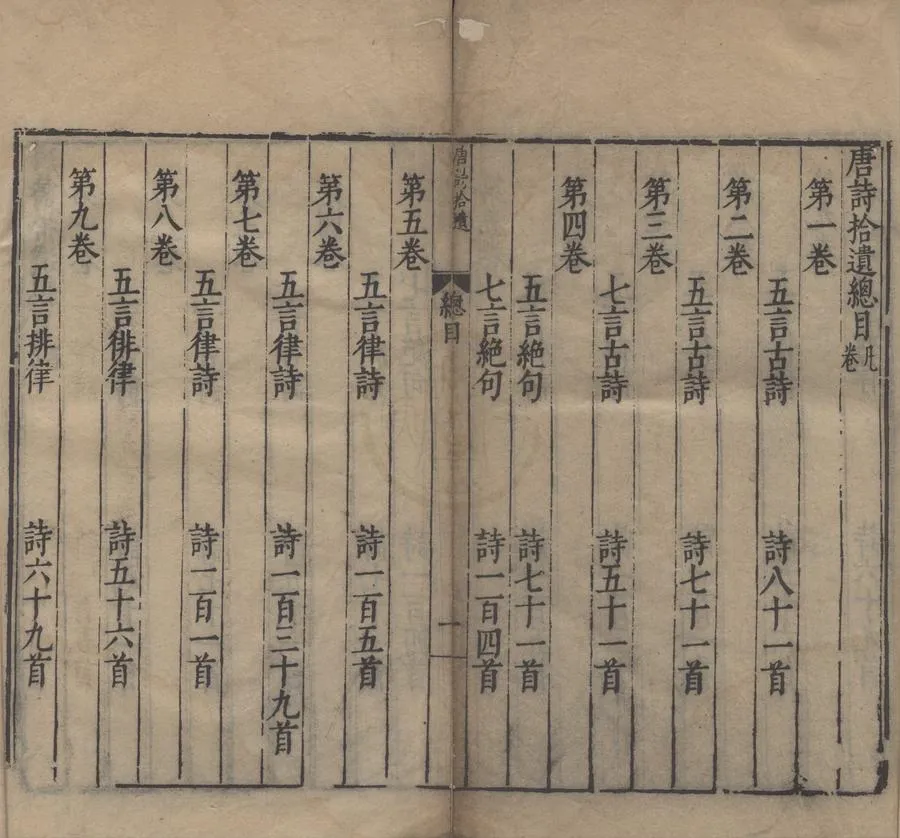 唐詩拾遺總目
第一卷
五言古詩 詩八十一首
第二卷
五言古詩 詩七十一首
第三卷
七言古詩 詩五十一首
第四卷
五言絕句 詩七十一首
七言絕句 詩一百四首
唐詩拾遺 總目 一
第五卷
五言律詩 詩一百五首
第六卷
五言律詩 詩一百三十九首
第七卷
五言律詩 詩一百一首
第八卷
五言徘律 詩五十六首
第九卷
五言排律 詩六十九首